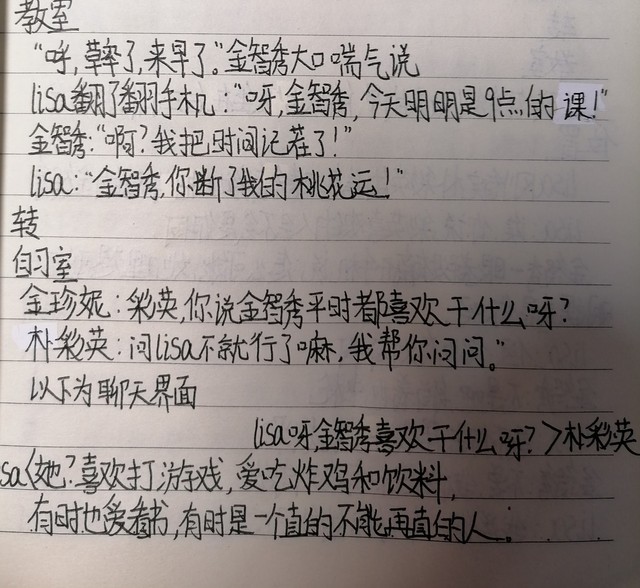 教室
"呼,草率了,来早了。"金智秀大口喘气说
lisa翻了翻手机:"呀,金智秀,今天明明是9点的课!"
金智秀:"啊?我把时间记茬了!"
lisa:"金智秀,你断了我的桃花运!"
转
自习室
金珍妮:彩英,你说金智秀平时都喜欢干什么呀?
朴彩英:问lisa不就行了嘛,我帮你问问。"
以下为聊天界面
lisa呀,金智秀喜欢干什么呀?>朴彩英
sa<她?喜欢打游戏,爱吃炸鸡和饮料,
有时也爱看书,有时是一个直的不能再直的人。